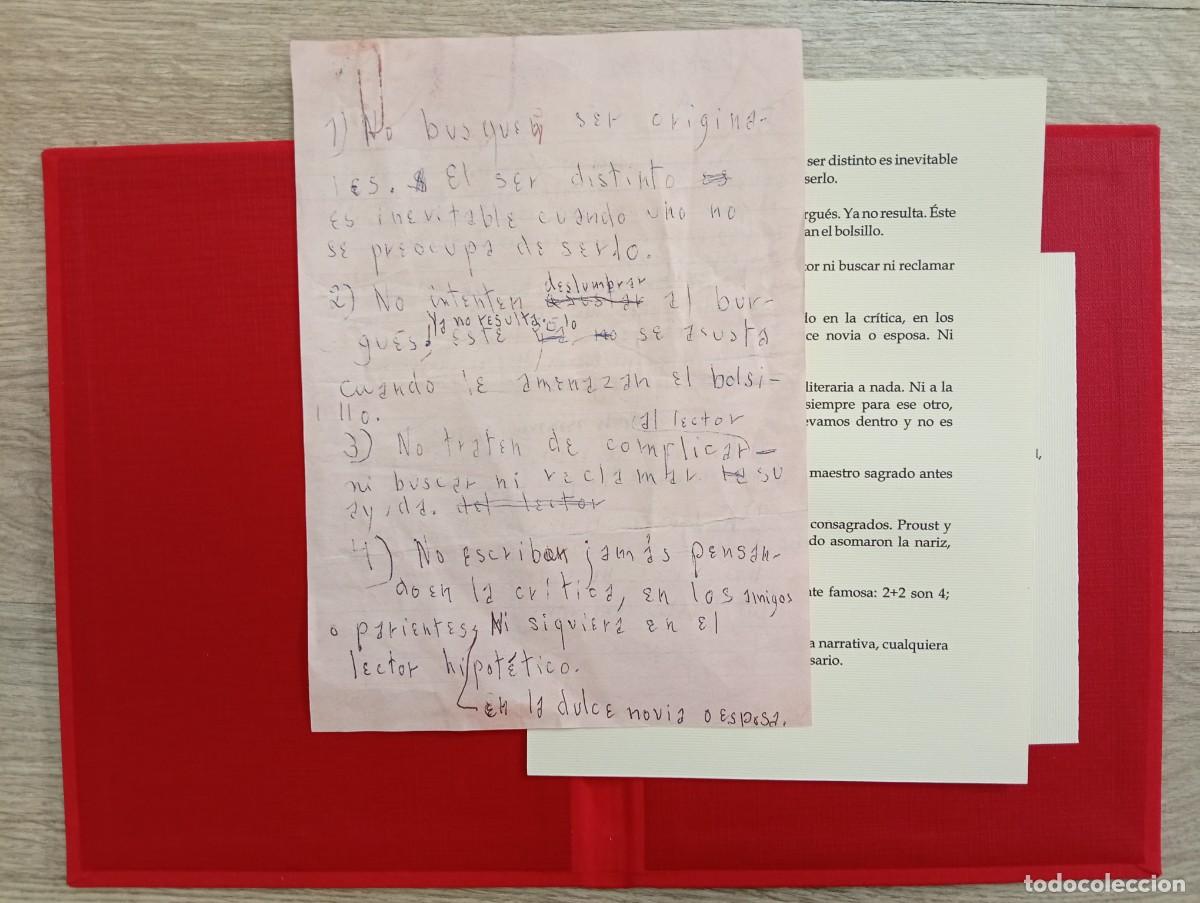 1) No busquen ser origina-
les. El ser distinto es
es inevitable cuando uno no
se preocupa de serlo.
deslumbrar
2) No intenten al bur-
Ya no resulta. Élo
gués. Éste no se asusta
cuando le amenazan el bolsi-
llo.
al lector
3) No traten de complicar
ni buscar ni reclamar la su
ayuda. del lector
4) No escriban jamás pensan-
do en la crítica, en los amigos
o parientes, Ni siquiera en el
lector hipotético.
en la dulce novia o esposa.
ser distinto es inevitable
serlo.
rgués. Ya no resulta. Éste
an el bolsillo.
or ni buscar ni reclamar
lo en la crítica, en los
ce novia o esposa. Ni
literaria a nada. Ni a la
siempre para ese otro,
evamos dentro y no es
maestro sagrado antes
consagrados. Proust y
do asomaron la nariz,
te famosa: 2+2 son 4;
a narrativa, cualquiera
sario.
todocoleccion